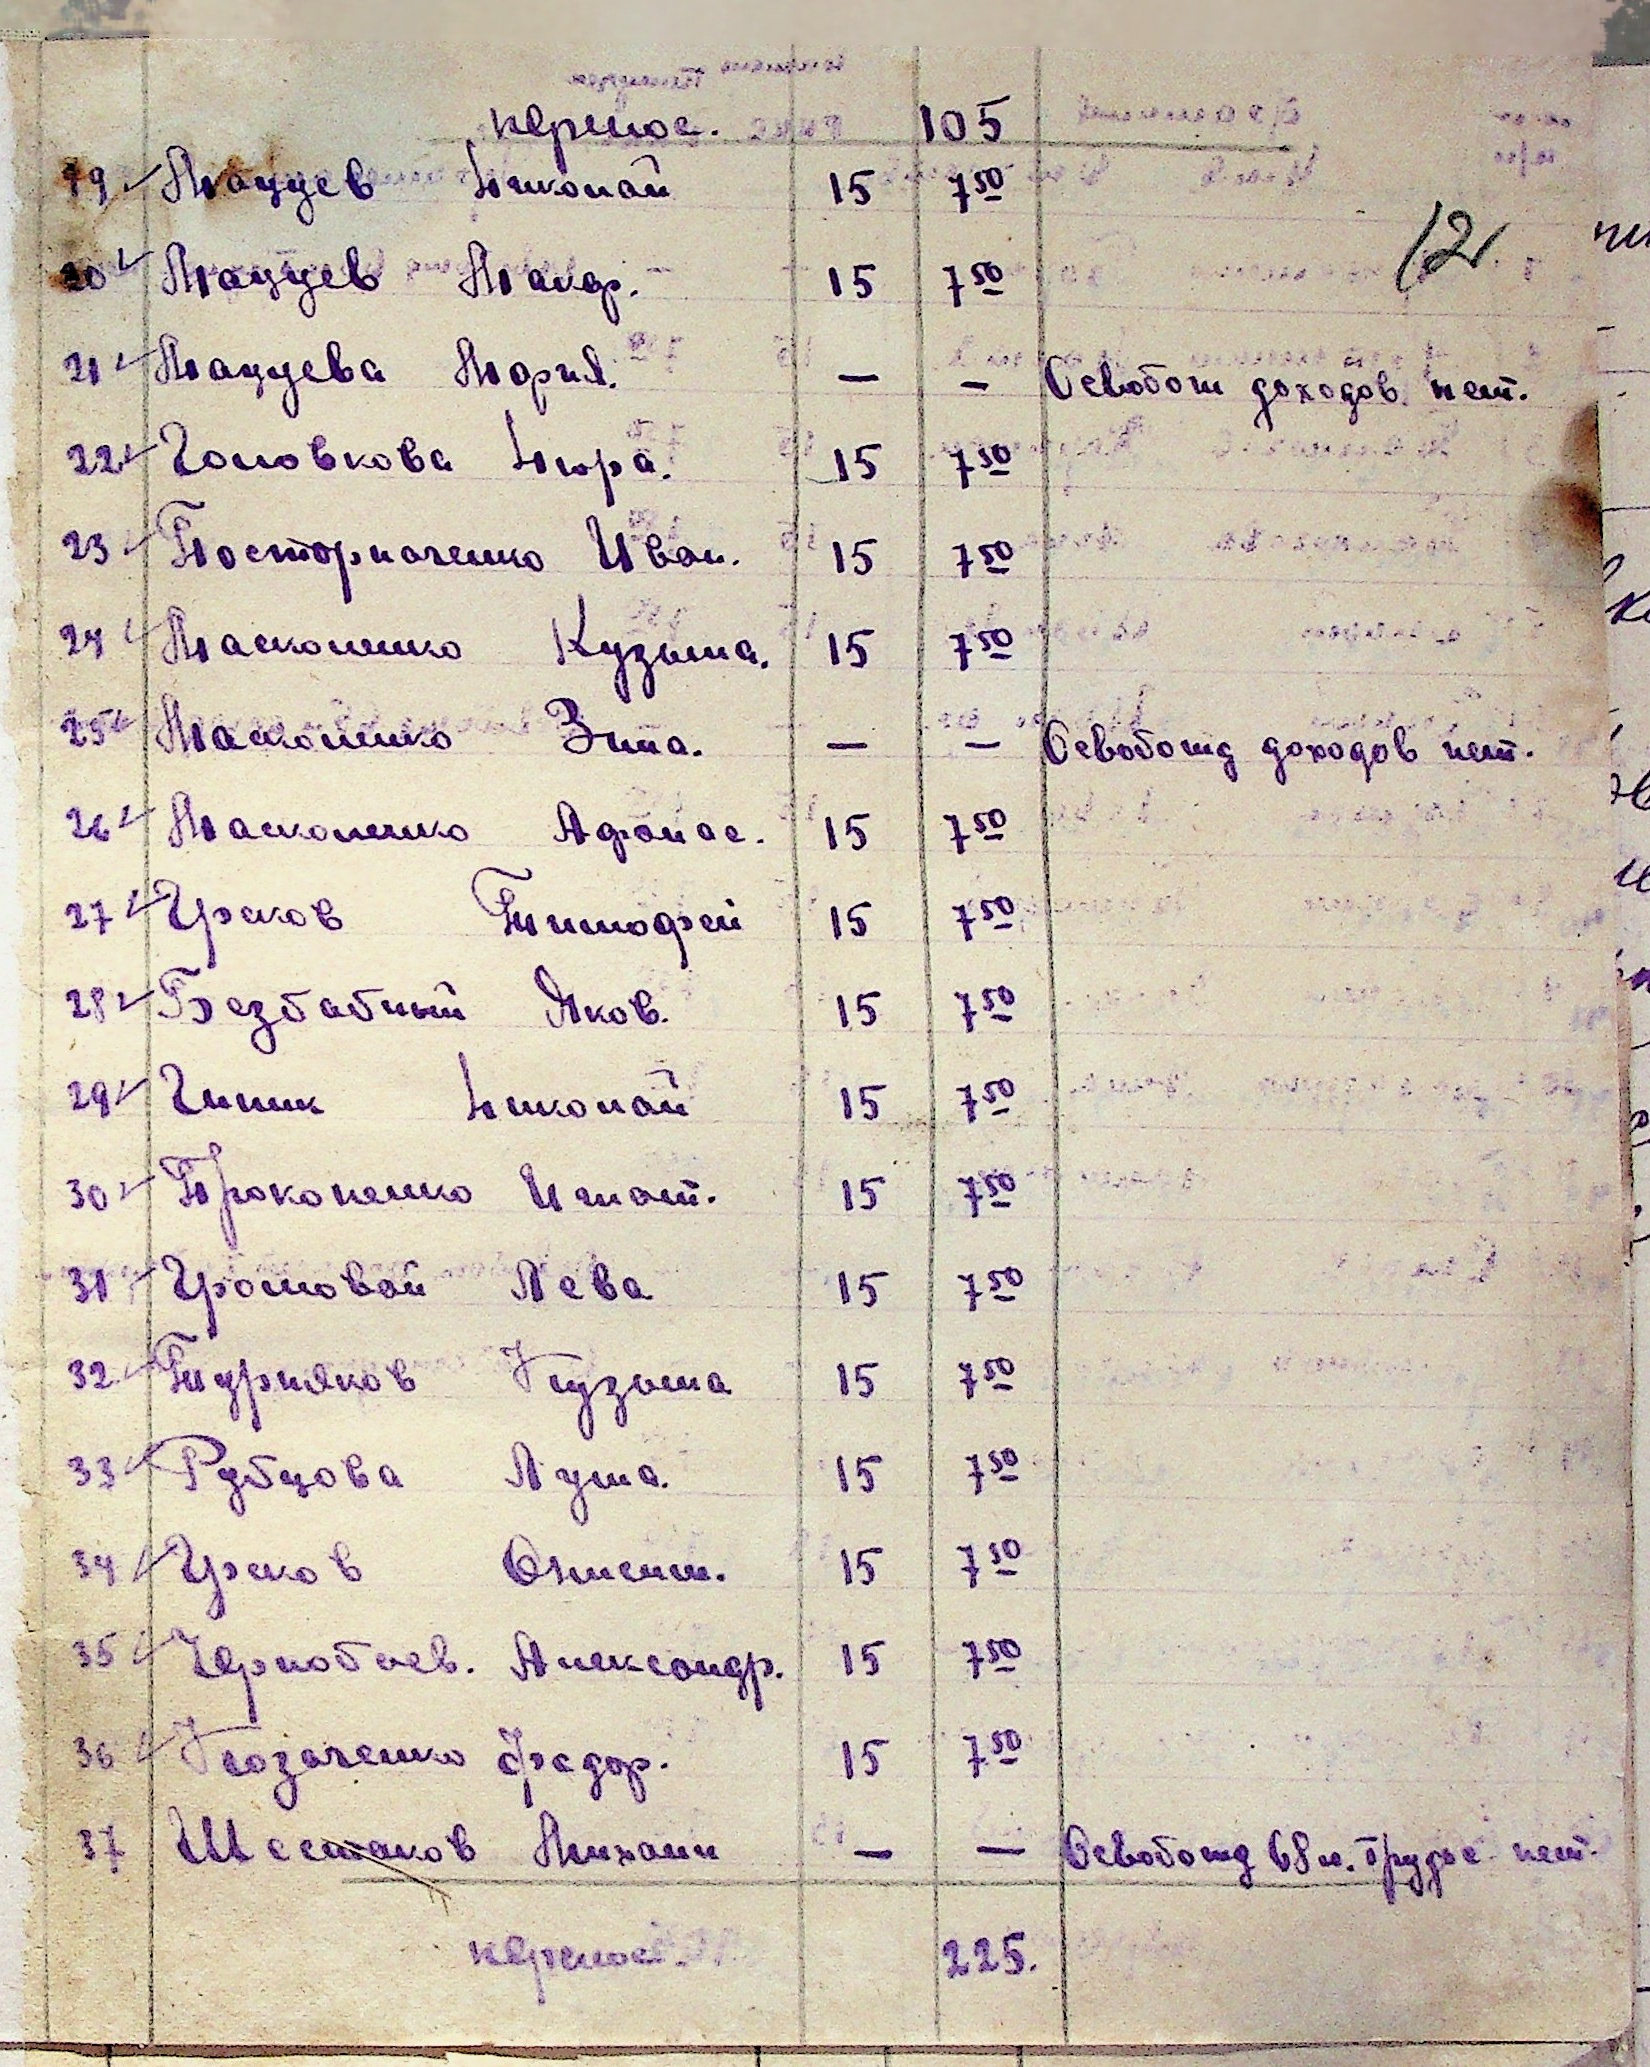 перенос. 105
19 Мацуев Николай 15 7 50
12
20 Мацуев Макар. 15 7 50
21 Мацуева Мария. — — Освобож доходов нет.
22 Головкова Нюра. 15 7 50
23 Посторначенко Иван. 15 7 50
24 Масконенко Кузьма. 15 7 50
25 Масконенко Зина. — — Освобожд доходов нет.
26 Масконенко Афонас. 15 7 50
27 Греков Тимофей 15 7 50
28 Безбабный Яков. 15 7 50
29 Николай 15 7 50
30 Прокопенко Игнат. 15 7 50
31 Громовой Лева 15 7 50
32 Пурняков Кузьма 15 7 50
33 Рубцова Луша. 15 7 50
34 Греков 15 7 50
35 Чернобаев. Александр. 15 7 50
36 Козаченко Федор. 15 7 50
37 Шестаков Михаил — — Освобожд 68 л. нет.
перенос. 225.